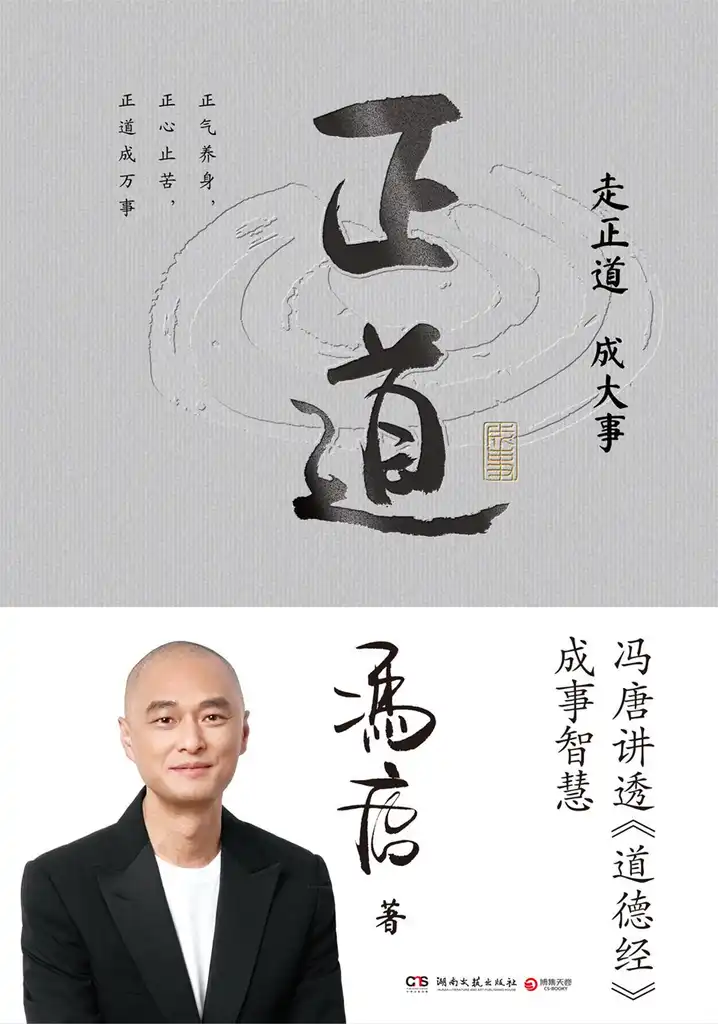 正道
走正道 成大事
正气养身，
正心止苦，
正道成万事
成事
冯唐
著
冯唐讲透《道德经》
成事智慧
CTS
湖南文艺出版社
HUNAN LITERATURE AND ART PUBLISHING HOUSE
博集天卷
CS-BOOKY